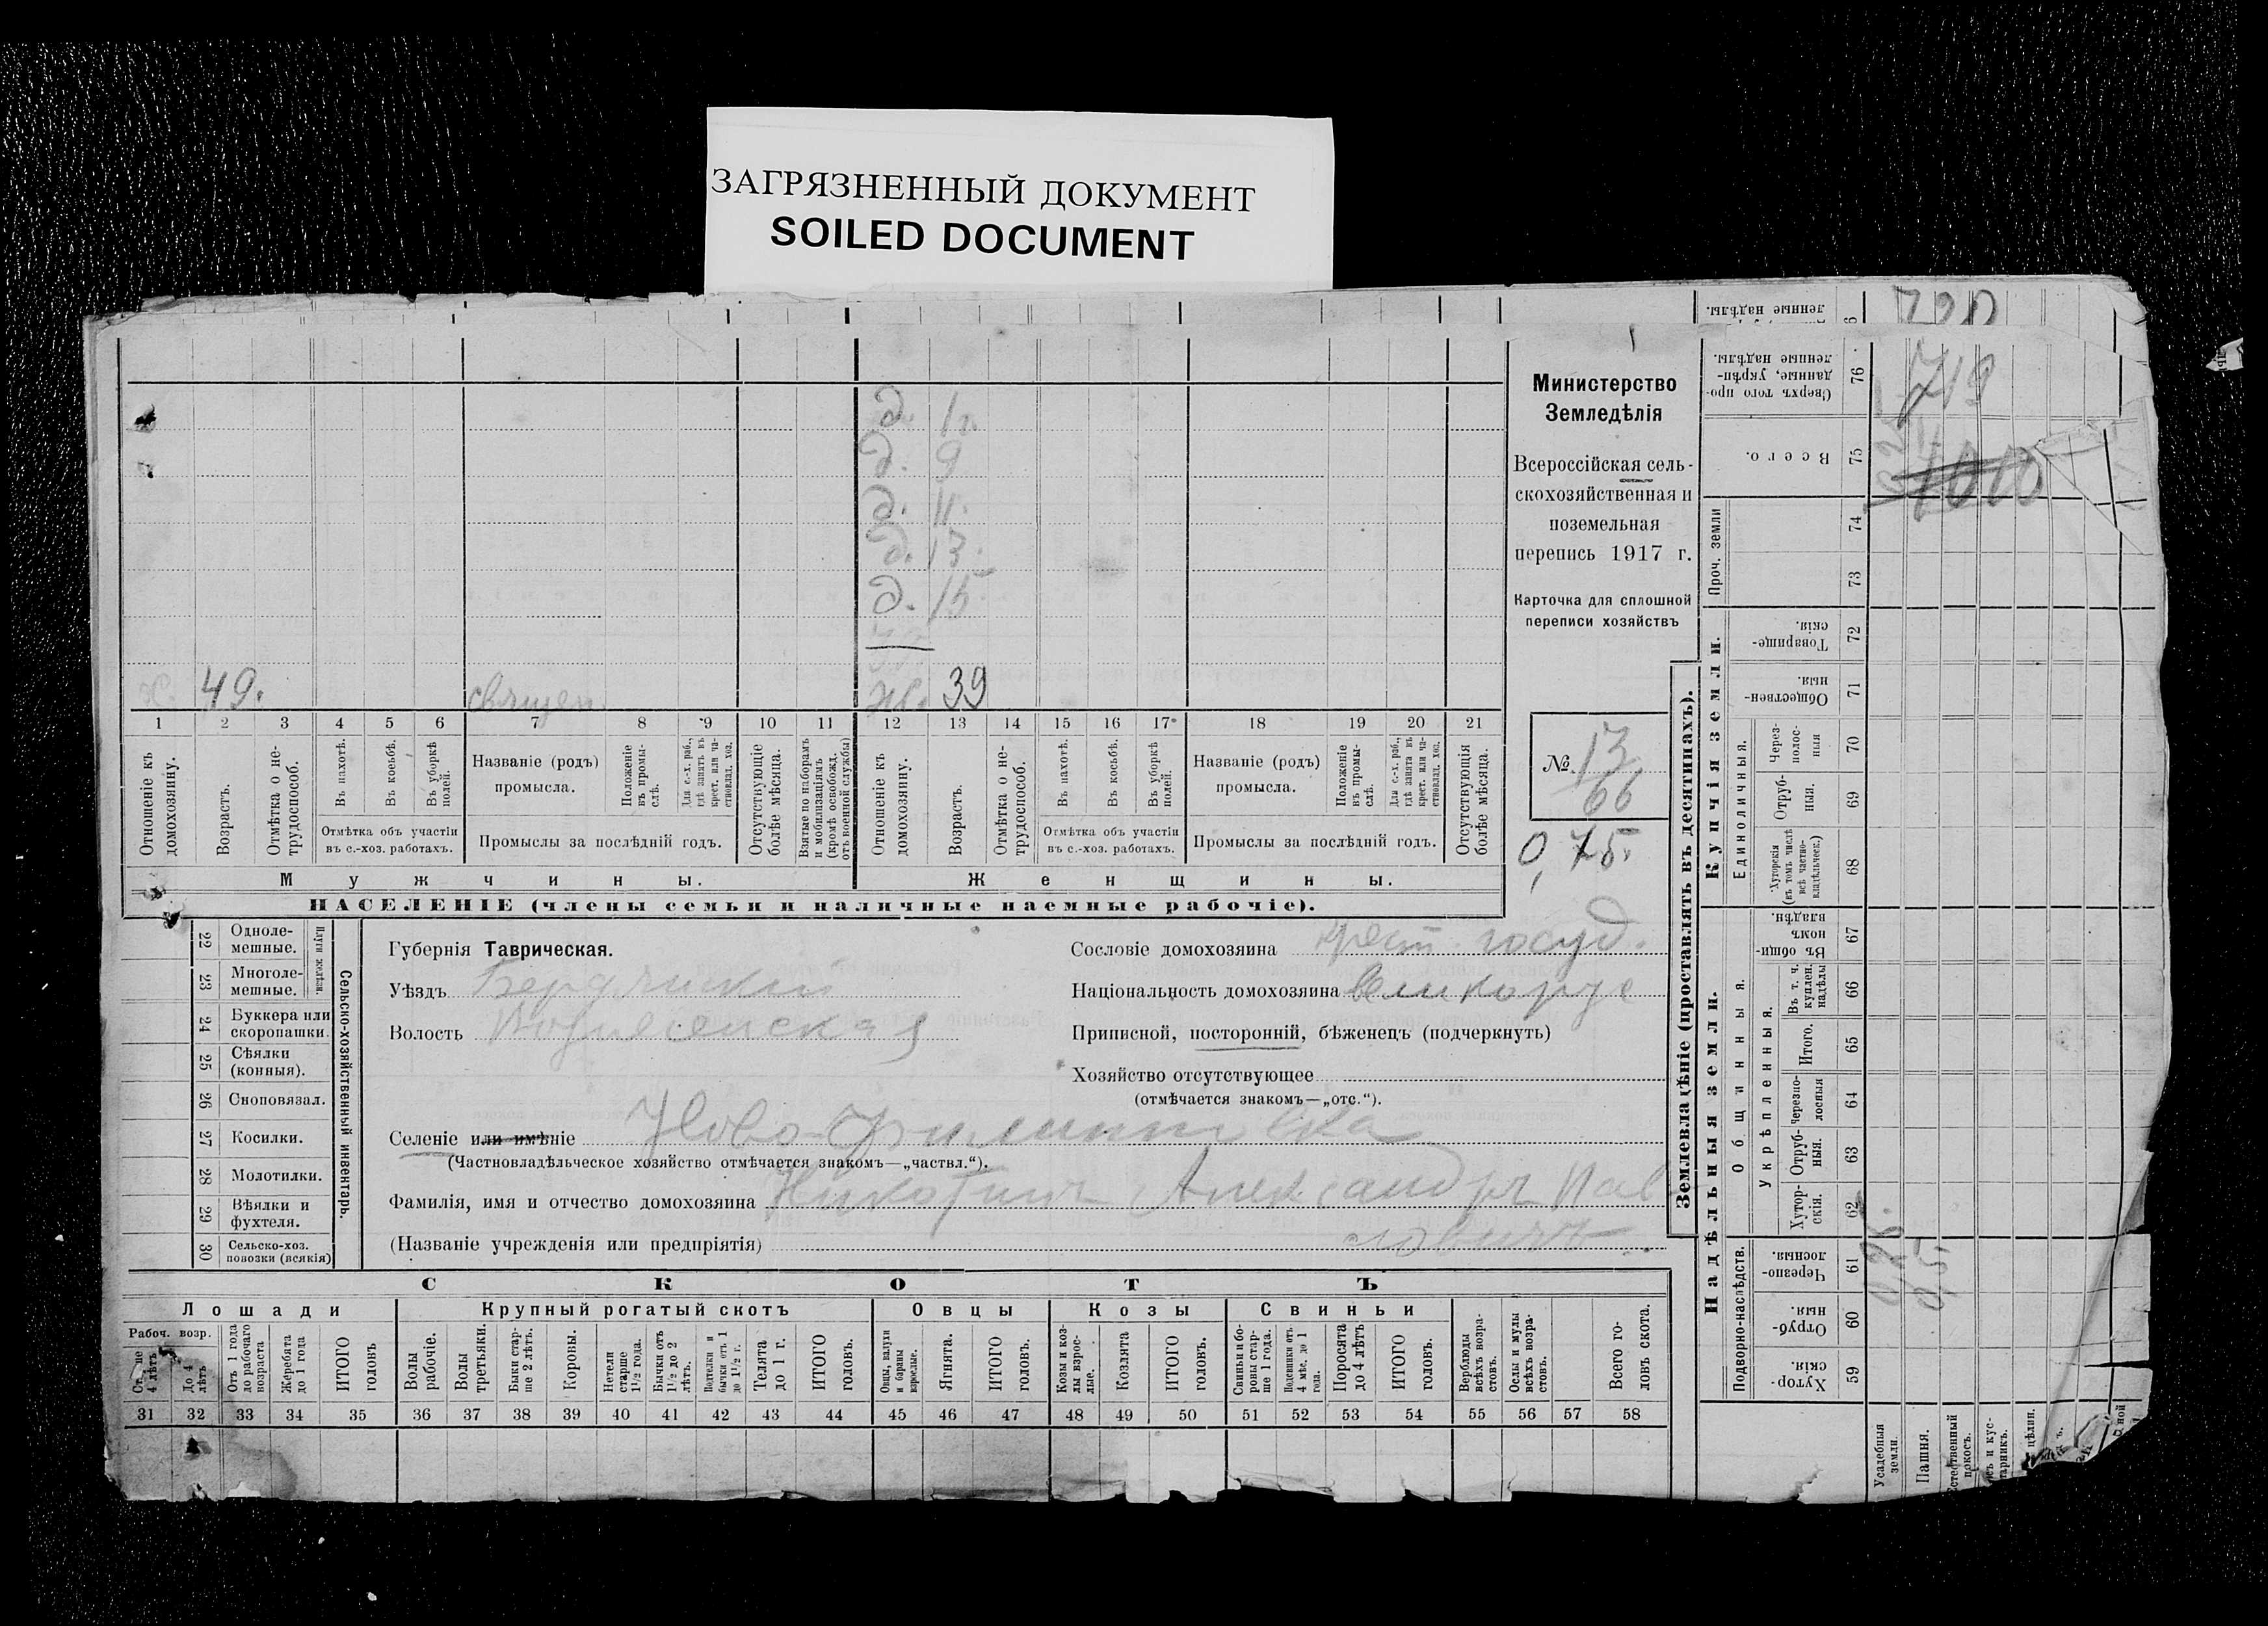 ЗАГРЯЗНЕННЫЙ ДОКУМЕНТ
SOILED DOCUMENT
Министерство
Земледѣлія
Всероссійская сель-
скохозяйственная и
поземельная
перепись 1917 г.
Карточка для сплошной
переписи хозяйствъ
№ 13
66
0,75.
д. 1 г.
д. 9
д. 11.
д. 13.
д. 15
х. 49. священ. жв. 39
1 2 3 4 5 6 7 8 9 10 11 12 13 14 15 16 17 18 19 20 21
Отношеніе къ домохозяину.
Возрастъ.
Отмѣтка о не-трудоспособ.
Въ пахотѣ.
Въ косьбѣ.
Въ уборкѣ полей.
Отмѣтка объ участіи
въ с.-хоз. работахъ.
Названіе (родъ)
промысла.
Положеніе въ промы-слѣ.
Для с.-х. раб., гдѣ занятъ въ крест. или ча-стновлад. хоз.
Промыслы за послѣдній годъ.
Отсутствующіе болѣе мѣсяца.
Взятые по наборамъ и мобилизаціямъ (кромѣ освобожд. отъ военной службы)
Отношеніе къ домохозяину.
Возрастъ.
Отмѣтка о не-трудоспособ.
Въ пахотѣ.
Въ косьбѣ.
Въ уборкѣ полей.
Отмѣтка объ участіи
въ с.-хоз. работахъ.
Названіе (родъ)
промысла.
Положеніе въ промы-слѣ.
Для с.-х. раб., гдѣ занята въ крест. или ча-стновлад. хоз.
Промыслы за послѣдній годъ.
Отсутствующія болѣе мѣсяца.
Мужчины. Женщины.
НАСЕЛЕНІЕ (члены семьи и наличные наемные рабочіе).
22 Одноле-мешные.
23 Многоле-мешные.
Плуги желѣзн.
24 Буккера или скоропашки.
25 Сѣялки (конныя).
26 Сноповязал.
27 Косилки.
28 Молотилки.
29 Вѣялки и фухтеля.
30 Сельско-хоз. повозки (всякія)
Сельско-хозяйственный инвентарь.
Губернія Таврическая.
Уѣздъ Бердянскій
Волость
Сословіе домохозяина крест. госуд.
Національность домохозяина Великорус
Приписной, посторонній, бѣженецъ (подчеркнуть)
Хозяйство отсутствующее
(отмѣчается знакомъ—„отс.“).
Селеніе или имѣніе Ново-Филипповка
(Частновладѣльческое хозяйство отмѣчается знакомъ—„частвл.“).
Фамилія, имя и отчество домохозяина Александръ Пав
(Названіе учрежденія или предпріятія) ловичъ
СКОТЪ
Лошади Крупный рогатый скотъ Овцы Козы Свиньи
Рабоч. возр.
До 4 лѣтъ
Отъ 1 года до рабочаго возраста
Жеребята до 1 года
ИТОГО головъ
Волы рабочіе.
Волы третьяки.
Быки стар-ше 2 лѣтъ.
Коровы.
Нетели старше 1½ года.
Бычки отъ 1½ до 2 лѣтъ.
Подтелки и бычки отъ 1 до 1½ г.
Телята до 1 г.
ИТОГО головъ.
Овцы, валухи и бараны взрослые.
Ягнята.
ИТОГО головъ.
Козы и коз-лы взрос-лые.
Козлята
ИТОГО головъ.
Свиньи и бо-ровы стар-ше 1 года.
Подсвинки отъ 4 мѣс. до 1 года.
Поросята до 4 лѣтъ
ИТОГО головъ.
Верблюды всѣхъ возра-стовъ.
Ослы и мулы всѣхъ возра-стовъ.
Всего го-ловъ скота.
31 32 33 34 35 36 37 38 39 40 41 42 43 44 45 46 47 48 49 50 51 52 53 54 55 56 57 58
Землевладѣніе (проставлять въ десятинахъ).
ленные надѣлы.
Сверхъ того про-данные, укрѣп-ленные надѣлы. 76 719
Всего. 75 1010
Проч. земли 74 73
Купчія земли.
Товарище-скія. 72
Обществен-ныя. 71
Единоличныя.
Через-полос-ныя 70
Отруб-ныя. 69
Хуторскія (въ томъ числѣ всѣ частно-владѣльческ.) 68
Надѣльныя земли.
Общинныя.
Въ общи-номъ владѣн. 67
Укрѣпленныя.
Въ т. ч. куплен. надѣлы 66
Итого. 65
Черезпо-лосныя 64
Отруб-ныя. 63
Хутор-скія. 62
Подворно-наслѣдств.
Черезпо-лосныя. 61
Отруб-ныя. 60
Хутор-скія. 59
0,25.
0,5.
Усадебныя земли.
Пашня.
стественный покосъ.